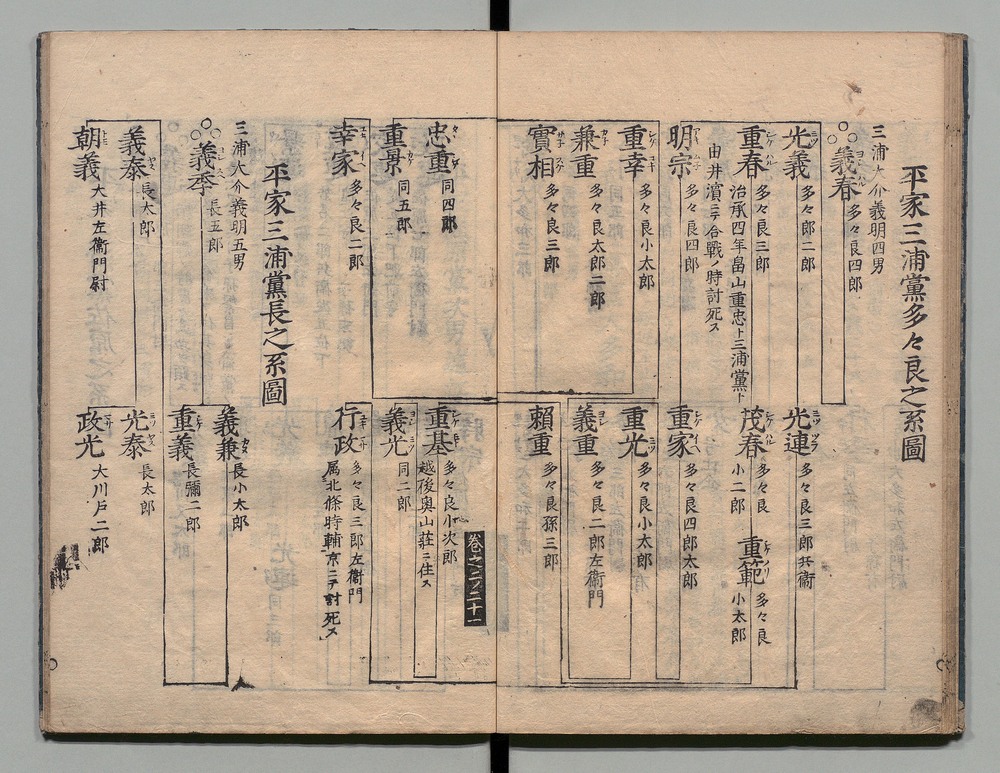 平家三浦黨多々良之系圖
三浦大介義明四男
義春 多々良四郎
光義 多々郎二郎
重春 多々良三郎
治承四年畠山重忠ト三浦黨ト
由井濵ニテ合戰ノ時討死ス
明宗 多々良四郎
重幸 多々良小太郎
兼重 多々良太郎二郎
實相 多々良三郎
光連 多々良三郎兵衞
茂春 多々良小二郎
重範 多々良小太郎
重家 多々良四郎太郎
重光 多々良小太郎
義重 多々良二郎左衞門
頼重 多々良孫三郎
忠重 同四郎
重景 同五郎
幸家 多々良二郎
重基 多々良小次郎
越後奥山莊ニ住ス
義光 同二郎
行政 多々良三郎左衞門
属北條時輔京ニテ討死ス
卷之二ノ二十一
平家三浦黨長之系圖
三浦大介義明五男
義季 長五郎
義泰 長太郎
朝義 大井左衞門尉
義兼 長小太郎
重義 長彌二郎
光泰 長太郎
政光 大川戸二郎